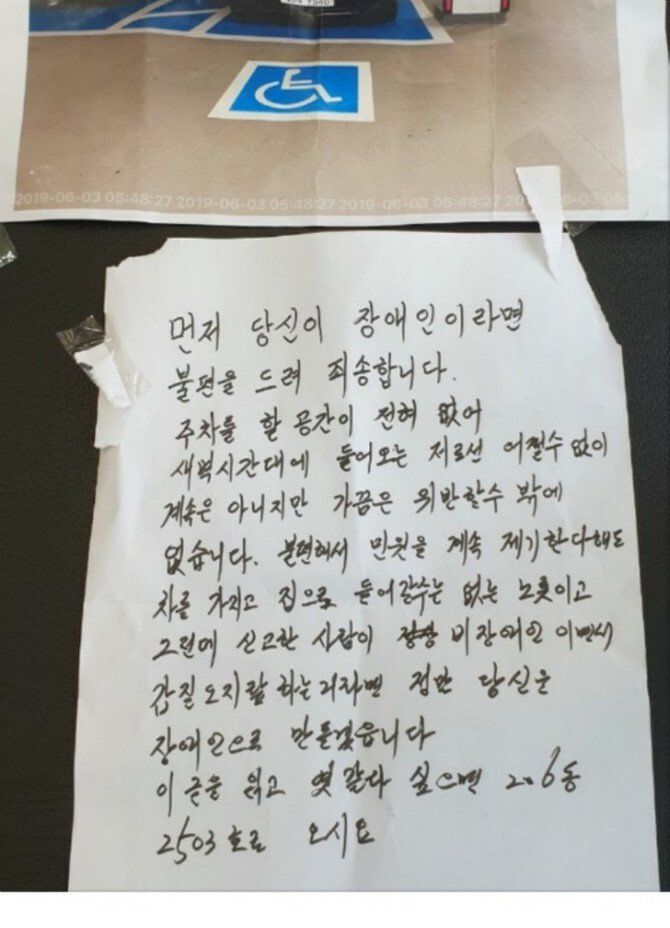 2019-06-03 05:48:27 2019-06-03 05:48:27 2019-06-03 05:48:27 20 9-06-03 05:48:27 2019-06-03
먼저 당신이 장애인이라면
불편을 드려 죄송합니다.
주차를 할 공간이 전혀 없어
새벽시간대에 들어오는 저로선 어쩔수 없이
계속은 아니지만 가끔은 위반할수 밖에
없습니다. 불편해서 민원을 계속 제기한다해도
차를 가지고 집으로 들어갈수는 없는 노릇이고
그런데 신고한 사람이 비장애인 이면서
갑질 오지랖 하는거라면 정만 당신은
장애인으로 만들겠읍니다
이 글을 읽고 엿같다 싶으면 206동
2503호로 오시오